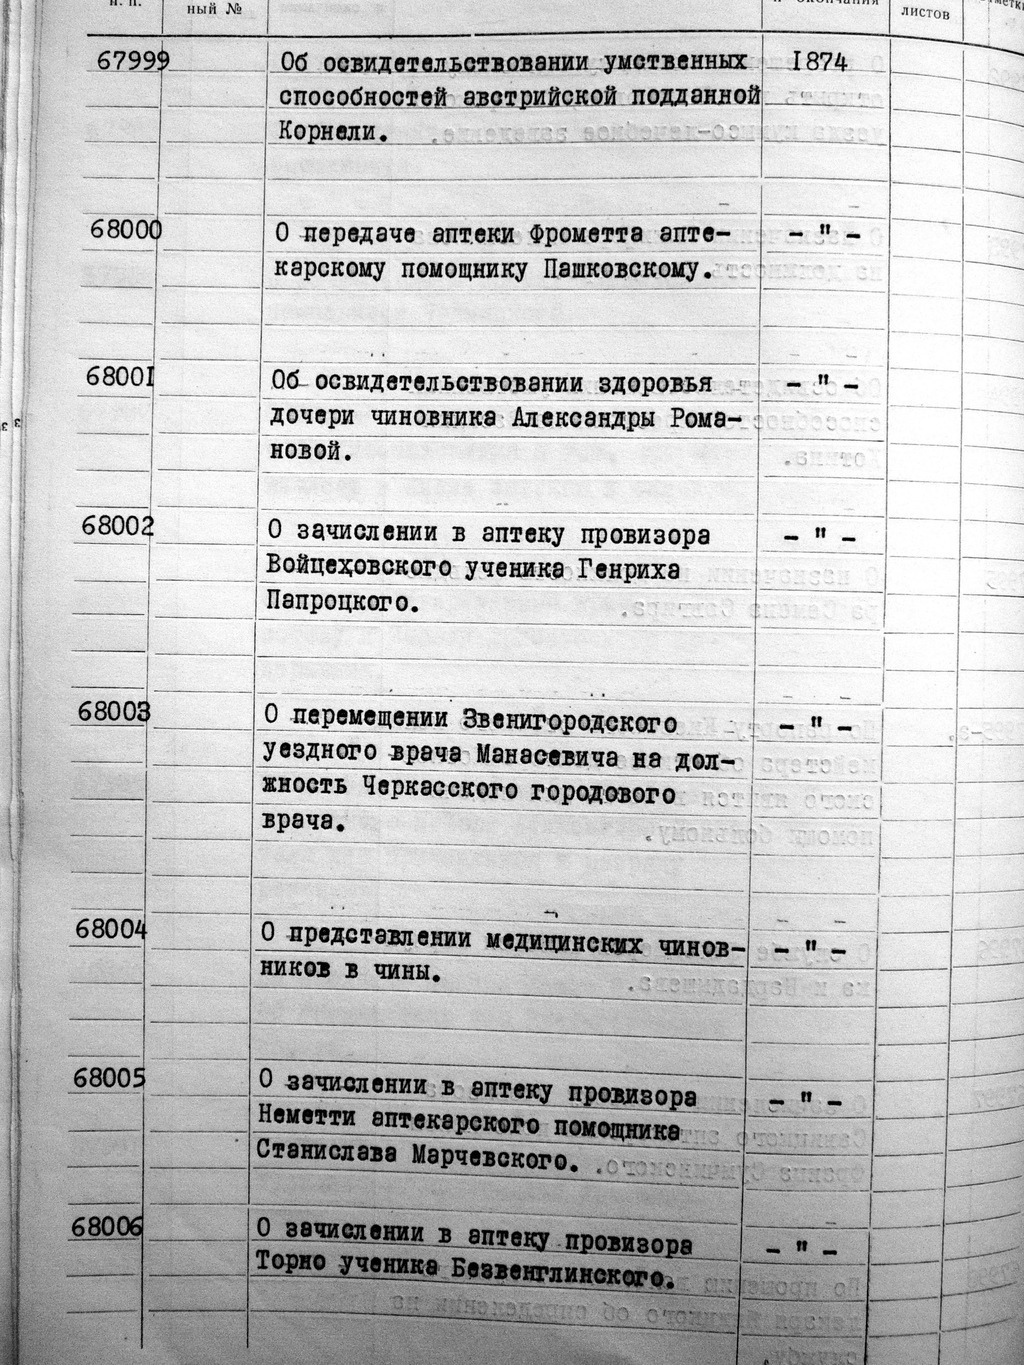 п. п.
ный №
и окончания
листов
67999 Об освидетельствовании умственных 1874
способностей австрийской подданной
Корнели.
68000 О передаче аптеки Фрометта апте- - " -
карскому помощнику Пашковскому.
68001 Об освидетельствовании здоровья - " -
дочери чиновника Александры Рома-
новой.
68002 О зачислении в аптеку провизора - " -
Войцеховского ученика Генриха
Папроцкого.
68003 О перемещении Звенигородского - " -
уездного врача Манасевича на дол-
жность Черкасского городового
врача.
68004 О представлении медицинских чинов- - " -
ников в чины.
68005 О зачислении в аптеку провизора - " -
Неметти аптекарского помощника
Станислава Марчевского.
68006 О зачислении в аптеку провизора - " -
Торно ученика Безвенглинского.